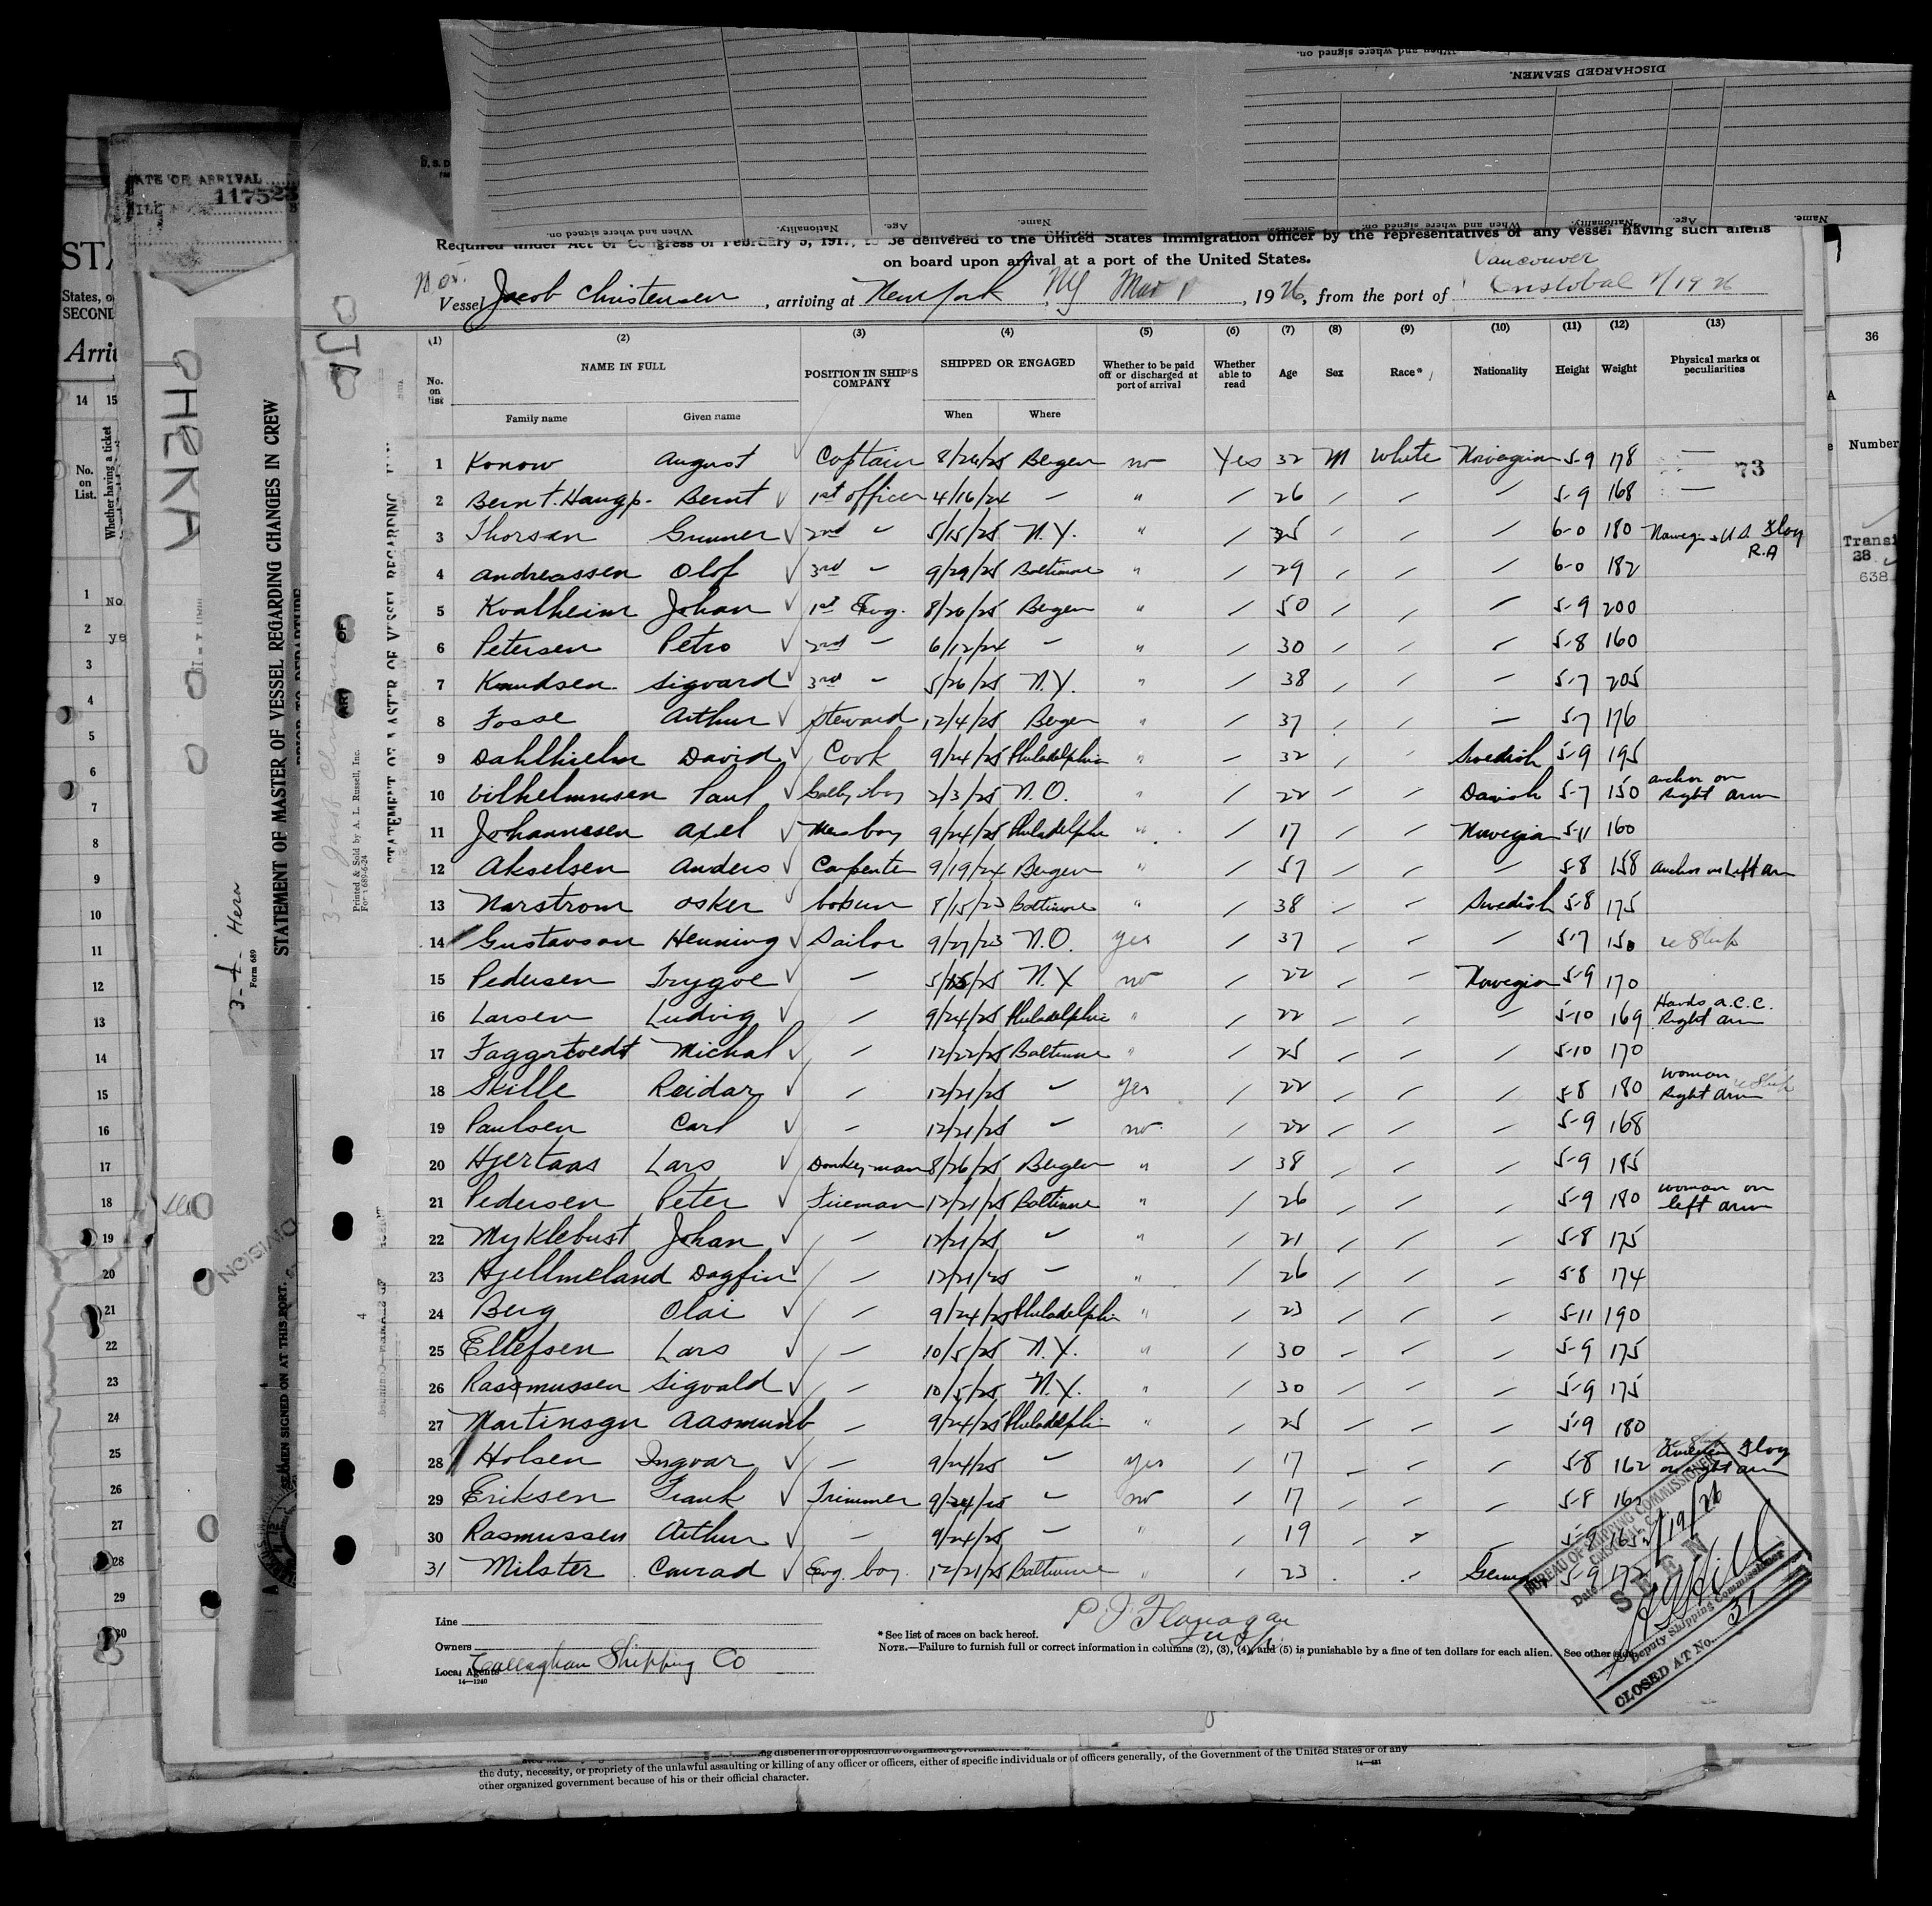 DISCHARGED SEAMEN.
When and where signed on.
Nationality.
Age.
Name.
When and where signed on.
Nationality.
Age.
Name.
DATE OF ARRIVAL
117523
Required under Act of Congress of February 5, 1917, to be delivered to the United States immigration officer by the representatives of any vessel having such aliens
on board upon arrival at a port of the United States.
Nor. Vancouver
Vessel Jacob Christensen, arriving at New York, NY Mar 1, 1926, from the port of Cristobal 2/19 26
(1) (2) (3) (4) (5) (6) (7) (8) (9) (10) (11) (12) (13)
No. on list NAME IN FULL POSITION IN SHIP'S COMPANY SHIPPED OR ENGAGED Whether to be paid off or discharged at port of arrival Whether able to read Age Sex Race* Nationality Height Weight Physical marks or peculiarities
Family name Given name When Where
1 Konow August Captain 8/26/25 Bergen no Yes 32 M White Norwegian 5-9 178 —
73
2 Bernt. Haugp. Bernt 1st officer 4/16/24 — " / 26 / / / 5-9 168 —
3 Thorsen Gunner 2nd " 5/15/25 N.Y. " / 25 / / / 6-0 180 Norwegi & U S Flag R.A
4 Andreassen Olof 3rd " 9/29/25 Baltimore " / 29 / / / 6-0 182
5 Kvalheim Johan 1st Eng. 8/26/25 Bergen " / 50 / / / 5-9 200
6 Petersen Petro 2nd " 6/12/24 — " / 30 / / / 5-8 160
7 Knudsen Sigvard 3rd " 5/26/25 N.Y. " / 38 / / / 5-7 205
8 Fosse Arthur Steward 12/4/25 Bergen " / 37 / / / 5-7 176
9 Dahlhielm David Cook 9/24/25 Philadelphia " / 32 / / Swedish 5-9 195
10 Vilhelmnsen Paul Gally boy 2/3/25 N.O. " / 22 / / Danish 5-7 150 anchor on Right arm
11 Johannesen Axel Messboy 9/24/25 Philadelphi " / 17 / / Norwegian 5-11 160
12 Akselsen Anders Carpenter 9/19/24 Bergen " / 57 / / / 5-8 158 anchor on Left arm
13 Narstrom Osker bosun 8/15/23 Baltimore " / 38 / / Swedish 5-8 175
14 Gustavson Henning Sailor 9/27/23 N.O. yes / 37 / / / 5-7 150 re Ship
15 Pedersen Trygve / 5/15/25 N.Y no / 22 / / Norwegian 5-9 170
16 Larsen Ludvig / 9/24/25 Philadelphia " / 22 / / / 5-10 169 Hands a.c.c. Right arm
17 Faggertvedt Michal / 12/22/25 Baltimore " / 25 / / / 5-10 170
18 Skille Reidar / 12/21/25 " yes / 22 / / / 5-8 180 woman Right arm re Ship
19 Paulsen Carl / 12/21/25 " no / 22 / / / 5-9 168
20 Hjertaas Lars Donkey-man 8/26/25 Bergen " / 38 / / / 5-9 185
21 Pedersen Peter Fireman 12/21/25 Baltimore " / 26 / / / 5-9 180 woman on left arm
22 Myklebust Johan / 12/21/25 " " / 21 / / / 5-8 175
23 Hjellmeland Dagfin / 12/21/25 " " / 26 / / / 5-8 174
24 Berg Olai / 9/24/25 Philadelphia " / 23 / / / 5-11 190
25 Ellefsen Lars / 10/5/25 N.Y. " / 30 / / / 5-9 175
26 Rassmussen Sigvald / 10/5/25 N.Y. " / 30 / / / 5-9 175
27 Martinsen Aasmund / 9/24/25 Philadelphi " / 25 / / / 5-9 180
28 Holsen Ingvar / 9/24/25 " yes / 17 / / / 5-8 162 re Ship American Flag on right arm
29 Eriksen Frank Trimmer 9/24/25 " no / 17 / / / 5-8
30 Rasmussen Arthur / 9/24/25 " " / 19 / / / 5-8 165
31 Milster Conrad Eng. boy 12/21/25 Baltimore " / 23 / / German 5-9 172
BUREAU OF SHIPPING COMMISSIONER
CRISTOBAL, C.Z.
Date 2/19/26
SEEN
Deputy Shipping Commissioner
CLOSED AT No. 31
Line
Owners
Local Agents Callaghan Shipping Co
14—1240
P J Flanagan
* See list of races on back hereof.
NOTE.—Failure to furnish full or correct information in columns (2), (3), (4), and (5) is punishable by a fine of ten dollars for each alien. See other side.
the duty, necessity, or propriety of the unlawful assaulting or killing of any officer or officers, either of specific individuals or of officers generally, of the Government of the United States or of any
other organized government because of his or their official character.
STATEMENT OF MASTER OF VESSEL REGARDING CHANGES IN CREW
Form 689
3-1 Hera
Printed & Sold by A. L. Russell, Inc.
3-1 Jacob Christensen
PHEKA
DIVISION
SEAMEN SIGNED ON AT THIS PORT.
States, o
SECOND
Arri
14 15
No. on List.
Whether having a ticket
36
Number
Transi
38
638